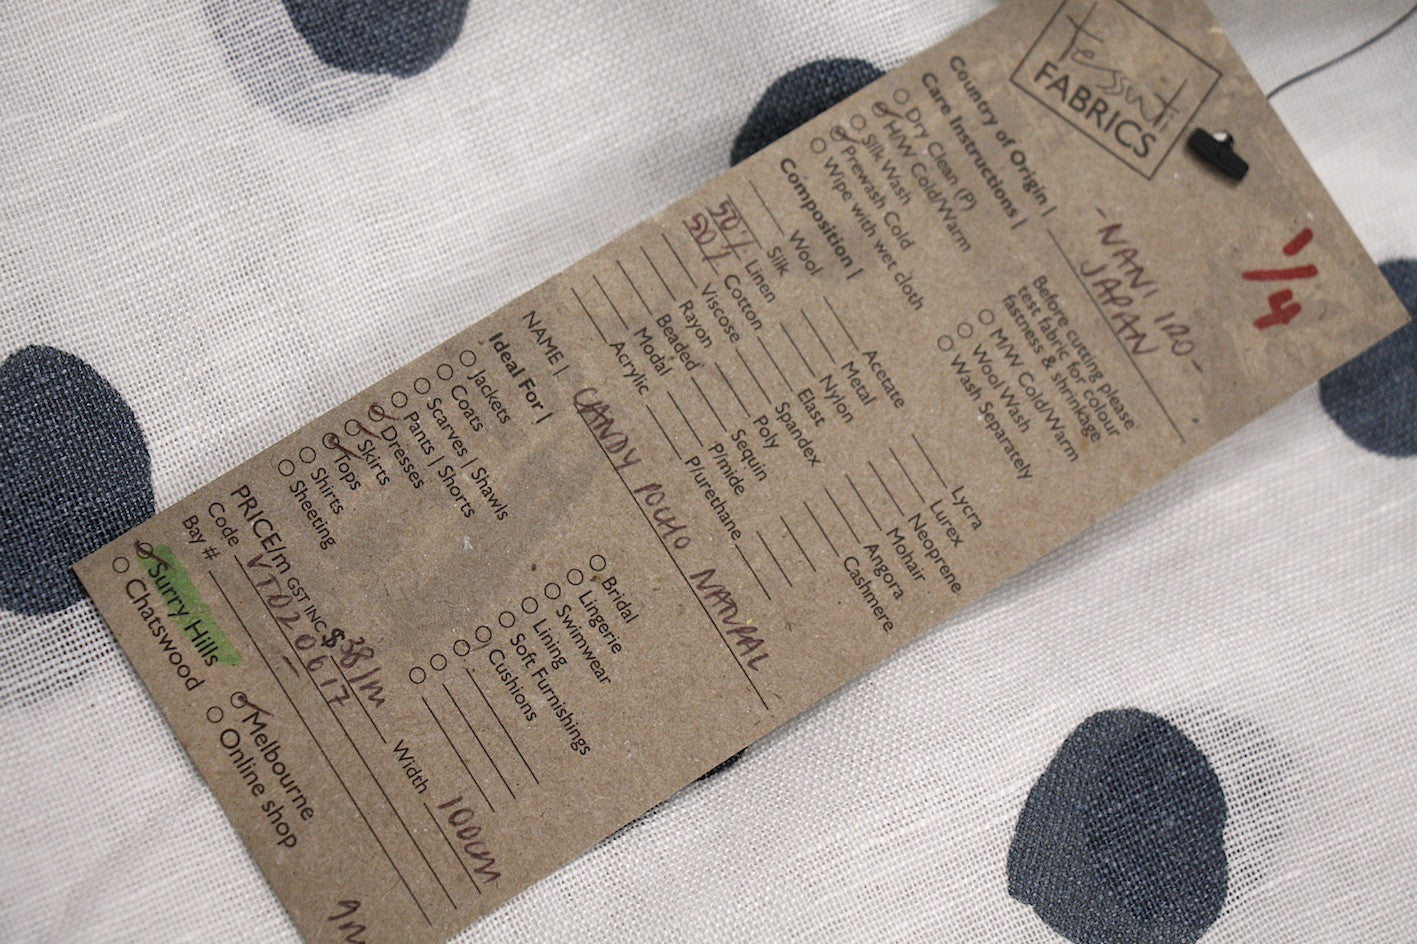 tessuti
FABRICS
1/4
Country of Origin |
- NANI IRO -
JAPAN
Care Instructions |
Dry Clean (P)
H/W Cold/Warm
Silk Wash
Prewash Cold
Wipe with wet cloth
Before cutting please
test fabric for colour
fastness & shrinkage
M/W Cold/Warm
Wool Wash
Wash Separately
Composition |
Wool
Silk
50% Linen
50% Cotton
Viscose
Rayon
Beaded
Modal
Acrylic
Acetate
Metal
Nylon
Elast
Spandex
Poly
Sequin
P/mide
P/urethane
Lycra
Lurex
Neoprene
Mohair
Angora
Cashmere
NAME | CANDY POCHO NATURAL
Ideal For |
Jackets
Coats
Scarves | Shawls
Pants | Shorts
Dresses
Skirts
Tops
Shirts
Sheeting
Bridal
Lingerie
Swimwear
Lining
Soft Furnishings
Cushions
PRICE/m GST INC $ 38/m Width 100cm
Code VT020617
Bay # -
Surry Hills
Chatswood
Melbourne
Online shop